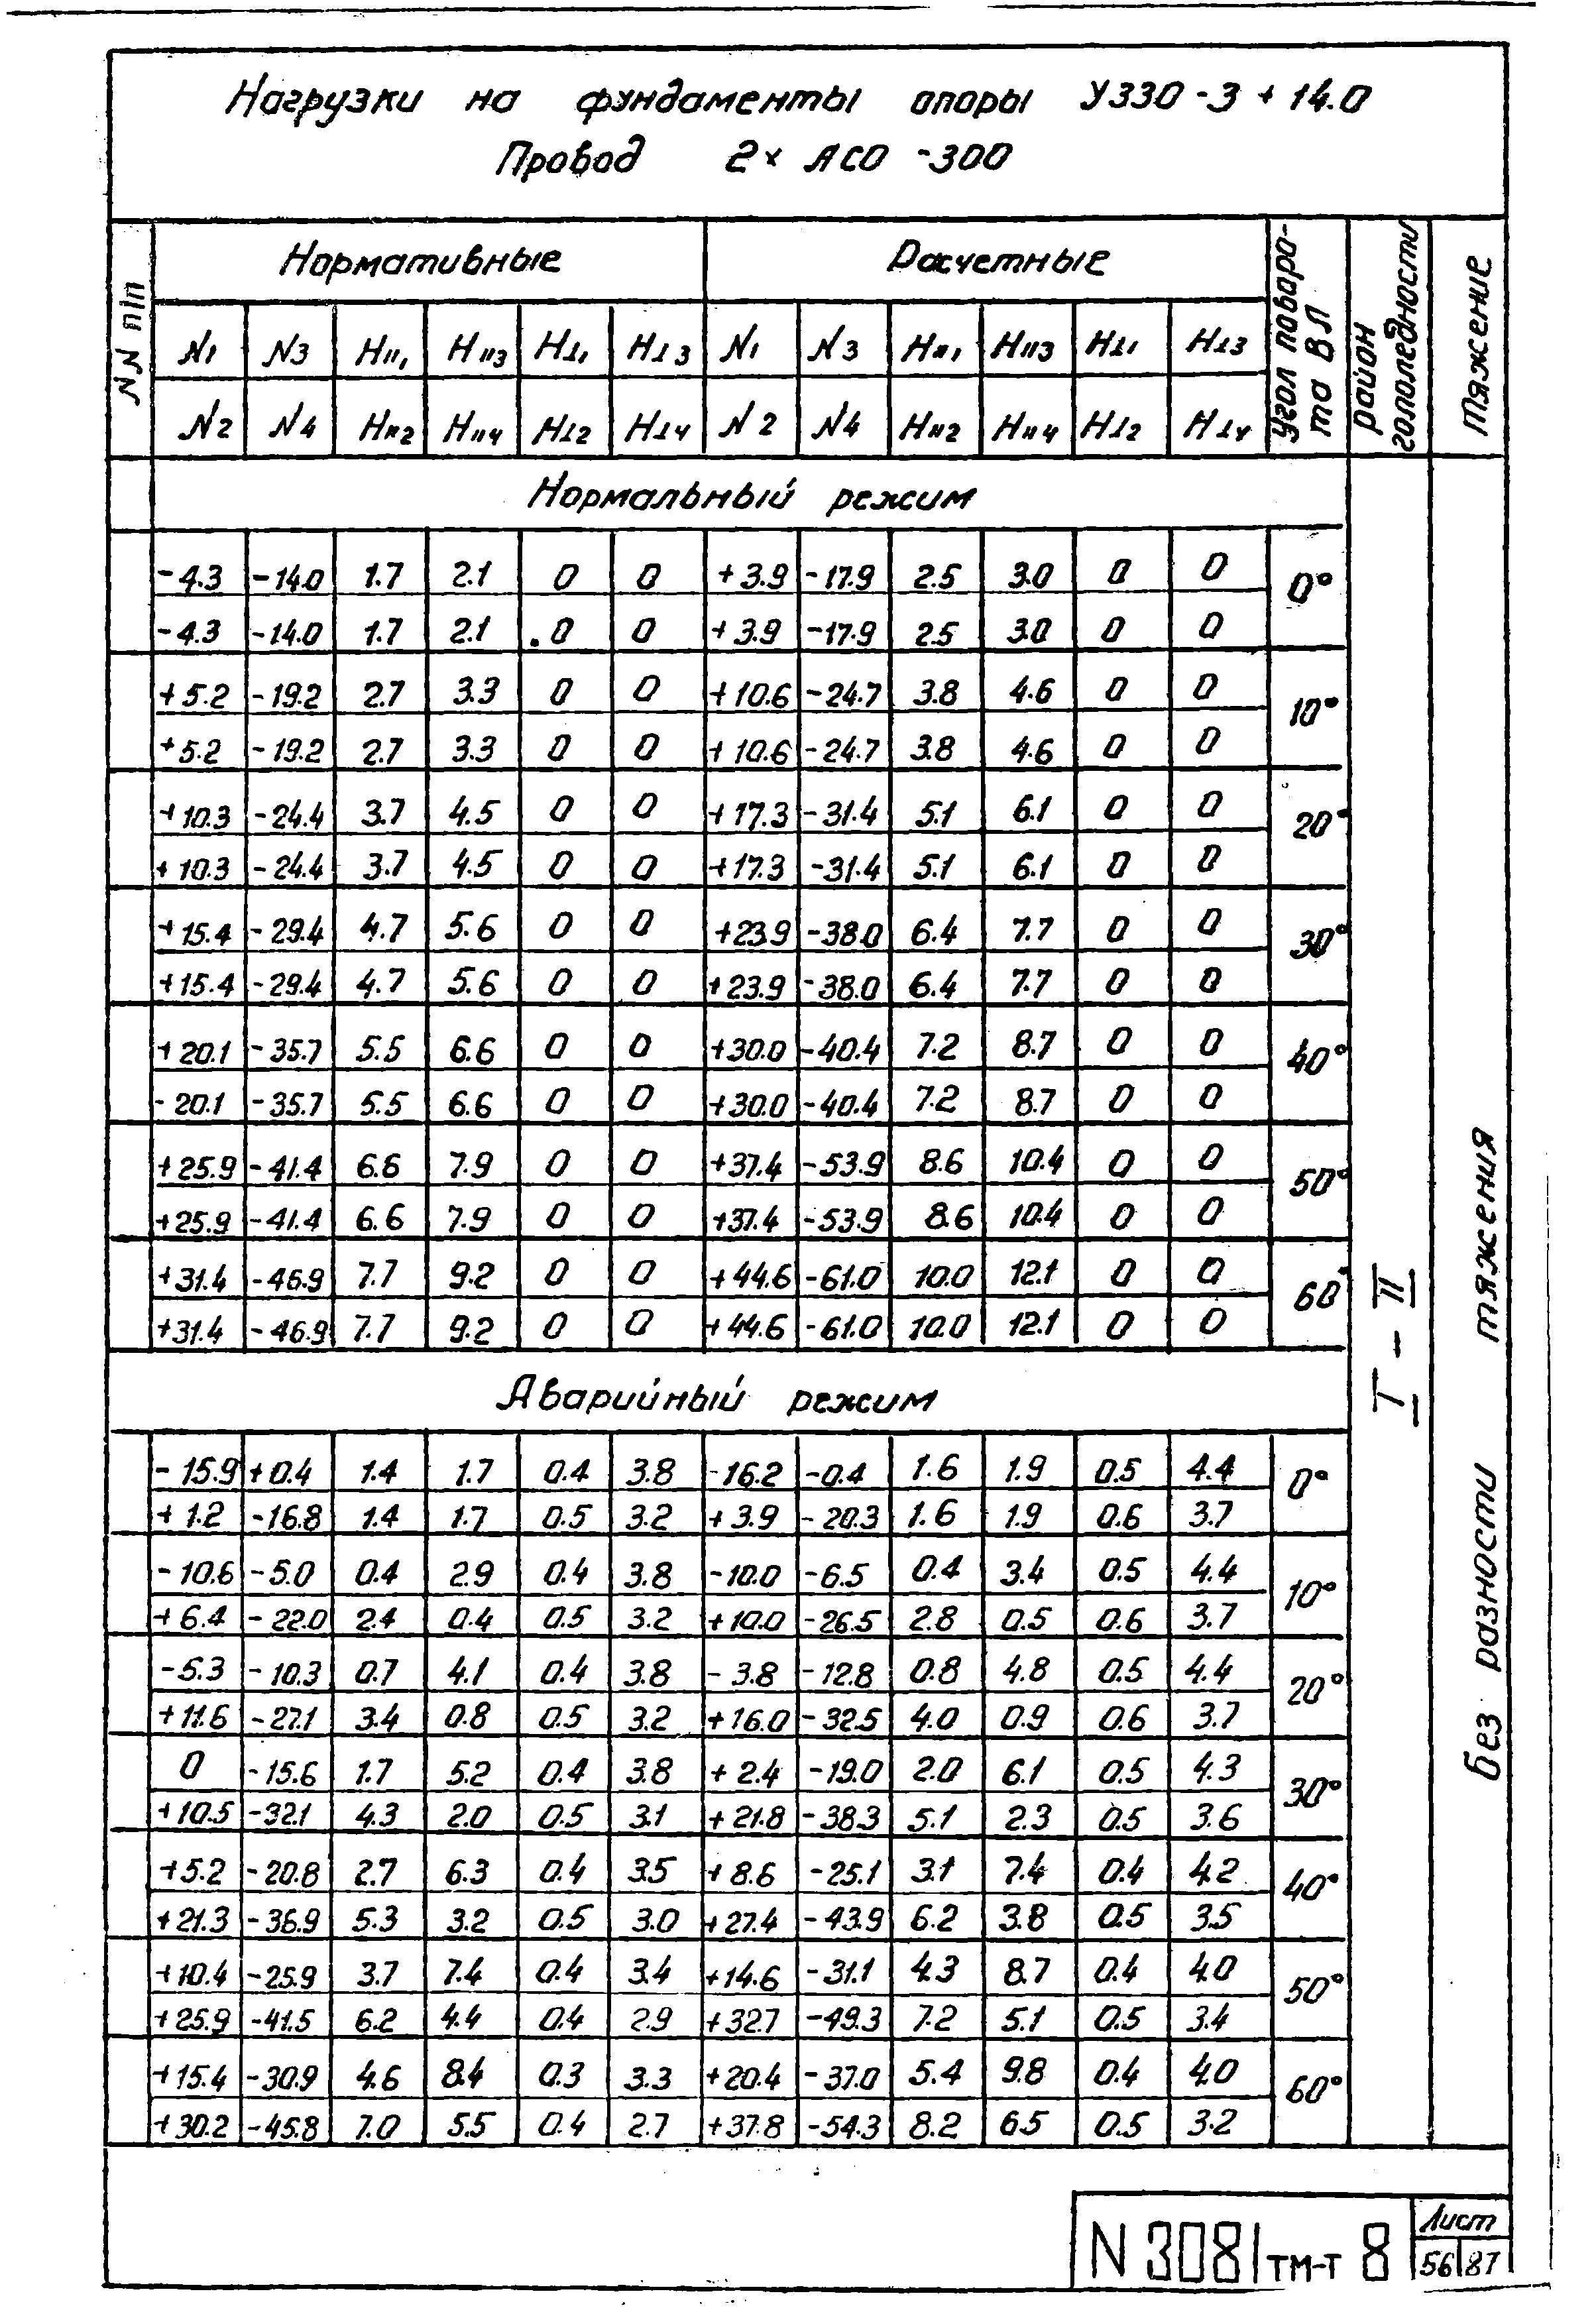 Нагрузки на фундаменты опоры У330-3 + 14.0
Провод 2× АСО -300
NN п/п Нормативные Расчетные Угол поворо- та ВЛ район гололедности Тяжение
N1 N3 H॥1 H॥3 H⊥1 H⊥3 N1 N3 H॥1 H॥3 H⊥1 H⊥3
N2 N4 H॥2 H॥4 H⊥2 H⊥4 N2 N4 H॥2 H॥4 H⊥2 H⊥4
Нормальный режим
-4.3 -14.0 1.7 2.1 0 0 +3.9 -17.9 2.5 3.0 0 0 0°
-4.3 -14.0 1.7 2.1 0 0 +3.9 -17.9 2.5 3.0 0 0
+5.2 -19.2 2.7 3.3 0 0 +10.6 -24.7 3.8 4.6 0 0 10°
+5.2 -19.2 2.7 3.3 0 0 +10.6 -24.7 3.8 4.6 0 0
+10.3 -24.4 3.7 4.5 0 0 +17.3 -31.4 5.1 6.1 0 0 20°
+10.3 -24.4 3.7 4.5 0 0 +17.3 -31.4 5.1 6.1 0 0
+15.4 -29.4 4.7 5.6 0 0 +23.9 -38.0 6.4 7.7 0 0 30°
+15.4 -29.4 4.7 5.6 0 0 +23.9 -38.0 6.4 7.7 0 0
+20.1 -35.7 5.5 6.6 0 0 +30.0 -40.4 7.2 8.7 0 0 40°
-20.1 -35.7 5.5 6.6 0 0 +30.0 -40.4 7.2 8.7 0 0
+25.9 -41.4 6.6 7.9 0 0 +37.4 -53.9 8.6 10.4 0 0 50°
+25.9 -41.4 6.6 7.9 0 0 +37.4 -53.9 8.6 10.4 0 0
+31.4 -46.9 7.7 9.2 0 0 +44.6 -61.0 10.0 12.1 0 0 60°
+31.4 -46.9 7.7 9.2 0 0 +44.6 -61.0 10.0 12.1 0 0
Аварийный режим
-15.9 +0.4 1.4 1.7 0.4 3.8 -16.2 -0.4 1.6 1.9 0.5 4.4 0°
+1.2 -16.8 1.4 1.7 0.5 3.2 +3.9 -20.3 1.6 1.9 0.6 3.7
-10.6 -5.0 0.4 2.9 0.4 3.8 -10.0 -6.5 0.4 3.4 0.5 4.4 10°
+6.4 -22.0 2.4 0.4 0.5 3.2 +10.0 -26.5 2.8 0.5 0.6 3.7
-5.3 -10.3 0.7 4.1 0.4 3.8 -3.8 -12.8 0.8 4.8 0.5 4.4 20°
+11.6 -27.1 3.4 0.8 0.5 3.2 +16.0 -32.5 4.0 0.9 0.6 3.7
0 -15.6 1.7 5.2 0.4 3.8 +2.4 -19.0 2.0 6.1 0.5 4.3 30°
+10.5 -32.1 4.3 2.0 0.5 3.1 +21.8 -38.3 5.1 2.3 0.5 3.6
+5.2 -20.8 2.7 6.3 0.4 3.5 +8.6 -25.1 3.1 7.4 0.4 4.2 40°
+21.3 -36.9 5.3 3.2 0.5 3.0 +27.4 -43.9 6.2 3.8 0.5 3.5
+10.4 -25.9 3.7 7.4 0.4 3.4 +14.6 -31.1 4.3 8.7 0.4 4.0 50°
+25.9 -41.5 6.2 4.4 0.4 2.9 +32.7 -49.3 7.2 5.1 0.5 3.4
+15.4 -30.9 4.6 8.4 0.3 3.3 +20.4 -37.0 5.4 9.8 0.4 4.0 60°
+30.2 -45.8 7.0 5.5 0.4 2.7 +37.8 -54.3 8.2 6.5 0.5 3.2
I - II
без разности тяжения
N 3081тм-т 8
Лист
56 87